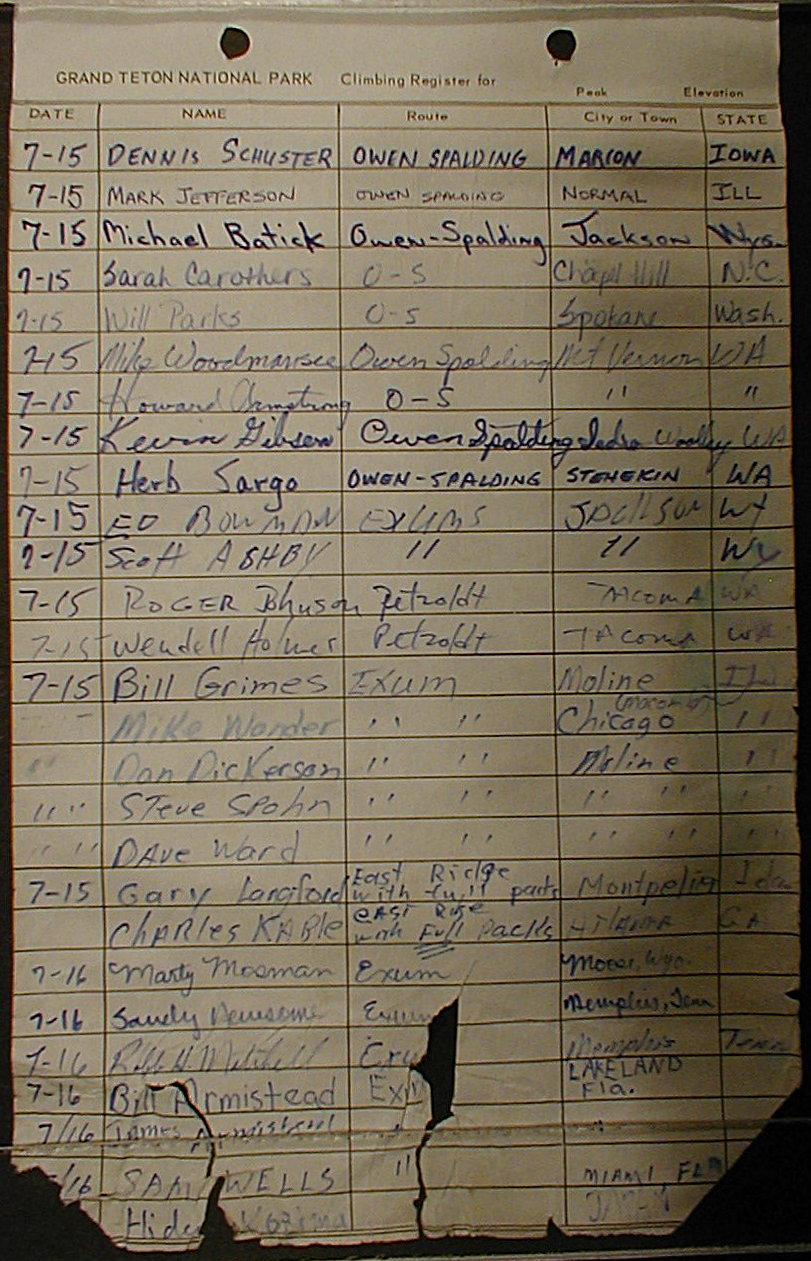 GRAND TETON NATIONAL PARK Climbing Register for
Peak Elevation
DATE NAME Route City or Town STATE
7-15 DENNIS SCHUSTER OWEN SPALDING MARION IOWA
7-15 MARK JEFFERSON OWEN SPALDING NORMAL ILL
7-15 Michael Batick Owen-Spalding Jackson Wyo.
7-15 Sarah Carothers O-S Chapl Hill N.C.
7-15 Will Parks O-S Spokane Wash.
7-15 Mike Woodmansee Owen Spalding Mt Vernon WA
7-15 Howard Armstrong O-S " "
7-15 Kevin Gibson Owen Spalding Sedro Woolley WA
7-15 Herb Sargo OWEN-SPALDING STEHEKIN WA
7-15 ED BOWMAN EXUMS JACKSON WY
7-15 Scott ASHBY " " WY
7-15 ROGER Johnson Petzoldt TACOMA WA
7-15 Wendell Holmes Petzoldt TAcoma WA
7-15 Bill Grimes EXUM Moline ILL
(Macomb)
Mike Wonder " " Chicago "
" Dan Dickerson " " Moline "
" " STeve Spohn " " " " "
" " DAve Ward " " " " "
7-15 Gary Langford East Ridge with full packs Montpelier Ida.
CHARles KABle eAST Ridge with Full Packs Atlanta GA
7-16 Marty Mosman Exum Moose, Wyo.
7-16 Sandy Newsome Exum Memphis, Tenn
7-16 Mitchell Exu Memphis Tenn
7-16 Bill Armistead Ex LAKELAND Fla.
7/16 James Armistead " "
/16 SAM WELLS " MIAMI, FLA
Hide Kozima